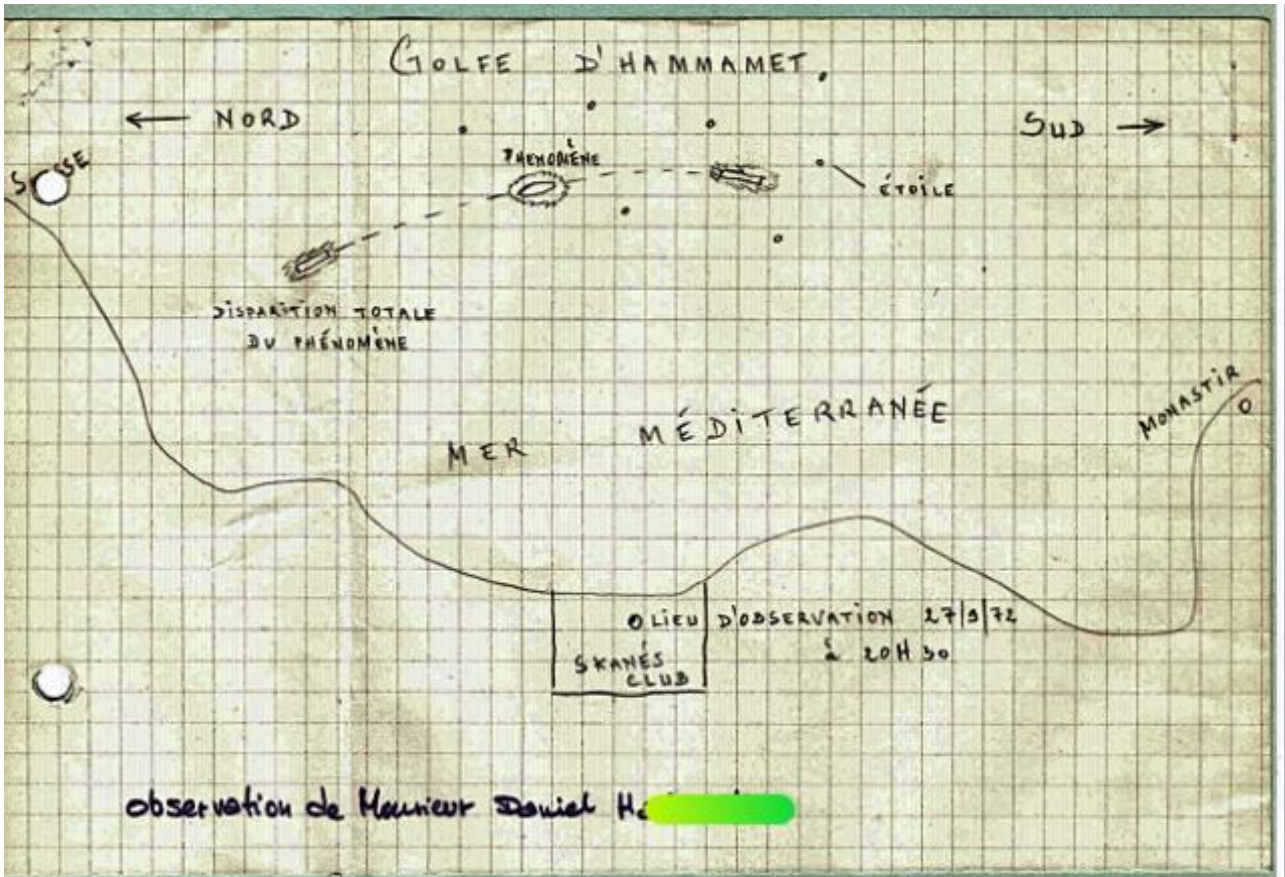 GOLFE D'HAMMAMET.
← NORD
SUD →
SOUSSE
PHÉNOMÈNE
ÉTOILE
DISPARITION TOTALE
DU PHÉNOMÈNE
MONASTIR
MER MÉDITERRANÉE
O LIEU D'OBSERVATION 27/9/72
à 20H30
SKANÉS
CLUB
observation de Monsieur Daniel